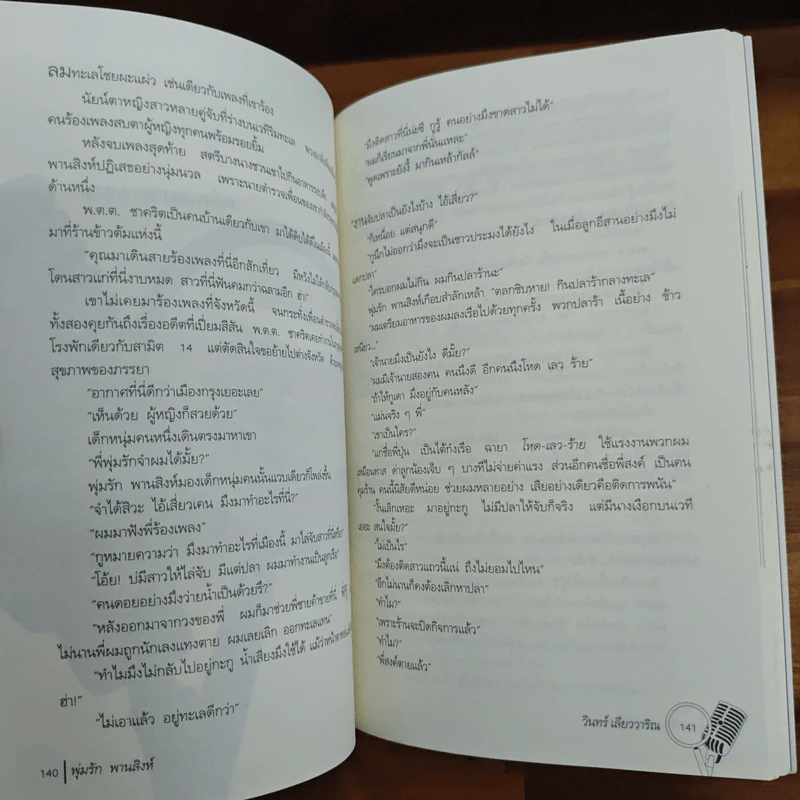 ลมทะเลโชยผะแผ่ว เช่นเดียวกับเพลงที่เขาร้อง
นัยน์ตาหญิงสาวหลายคู่จับที่ร่างบนเวทีริมทะเล
คนร้องเพลงสบตาผู้หญิงทุกคนพร้อมรอยยิ้ม
หลังจบเพลงสุดท้าย สตรีบางนางชวนเขาไปกินอาหารรอบดึก
พานสิงห์ปฏิเสธอย่างนุ่มนวล เพราะนายตำรวจเพื่อนของเขากำลัง
ด้านหนึ่ง
พ.ต.ต. ชาคริตเป็นคนบ้านเดียวกับเขา มาได้ดิบได้ดีในเมืองนี้
มาที่ร้านข้าวต้มแห่งนี้
"คุณมาเดินสายร้องเพลงที่นี่อีกสักเที่ยว มีหวังไม่ได้กลับ
โดนสาวแก่ที่นี่งาบหมด สาวที่นี่ฟันคมกว่าฉลามอีก ฮ่า!"
เขาไม่เคยมาร้องเพลงที่จังหวัดนี้ จนกระทั่งเพื่อนตำรวจ
ทั้งสองคุยกันถึงเรื่องอดีตที่เปี่ยมสีสัน พ.ต.ต. ชาคริตเคยทำงาน
โรงพักเดียวกับสามิต 14 แต่ตัดสินใจขอย้ายไปต่างจังหวัด
สุขภาพของภรรยา
"อากาศที่นี่ดีกว่าเมืองกรุงเยอะเลย"
"เห็นด้วย ผู้หญิงก็สวยด้วย"
เด็กหนุ่มคนหนึ่งเดินตรงมาหาเขา
"พี่พุ่มรักจำผมได้มั้ย?"
พุ่มรัก พานสิงห์มองเด็กหนุ่มคนนั้นแวบเดียวก็โพล่งขึ้น
"จำได้สิวะ ไอ้เสี่ยวเคน มึงมาทำอะไรที่นี่?"
"ผมมาฟังพี่ร้องเพลง"
"กูหมายความว่า มึงมาทำอะไรที่เมืองนี้ มาไล่จับสาวที่นี่หรือ"
"โอ้ย! บ่มีสาวให้ไล่จับ มีแต่ปลา ผมมาทำงานเป็นลูกเรือ"
"คนดอยอย่างมึงว่ายน้ำเป็นด้วยรึ?"
"หลังออกมาจากวงของพี่ ผมก็มาช่วยพี่ชายค้าขายที่นี่
ไม่นานพี่ผมถูกนักเลงแทงตาย ผมเลยเลิก ออกทะเลแทน"
"ทำไมมึงไม่กลับไปอยู่กะกู น้ำเสียงมึงใช้ได้ แม้ว่าหน้าตา
ฮ่า!"
"ไม่เอาแล้ว อยู่ทะเลดีกว่า"
140 | พุ่มรัก พานสิงห์
"มึงติดสาวที่นี่น่ะซี กูรู้ คนอย่างมึงขาดสาวไม่ได้"
"ผมก็เรียนมาจากพี่นั่นแหละ"
"พูดเพราะยังงี้ มากินเหล้ากัลล์"
"งานจับปลาเป็นยังไงบ้าง ไอ้เสี่ยว?"
"ก็เหนื่อย แต่สนุกดี"
"กูนึกไม่ออกว่ามึงจะเป็นชาวประมงได้ยังไง ในเมื่อลูกอีสานอย่างมึงไม่
แดกปลา"
"ใครบอกผมไม่กิน ผมกินปลาร้านะ"
พุ่มรัก พานสิงห์เกือบสำลักเหล้า "ตลกชิบหาย! กินปลาร้ากลางทะเล"
"ผมเตรียมอาหารของผมลงเรือไปด้วยทุกครั้ง พวกปลาร้า เนื้อย่าง ข้าว
เหนียว..."
"เจ้านายมึงเป็นยังไง ดีมั้ย?"
"ผมมีเจ้านายสองคน คนนึงดี อีกคนนึงโหด เลว ร้าย"
"ถ้าให้กูเดา มึงอยู่กับคนหลัง"
"แม่นจริง ๆ พี่"
"เขาเป็นใคร?"
"แกชื่อพี่ปุ่น เป็นไต้ก๋งเรือ ฉายา โหด-เลว-ร้าย ใช้แรงงานพวกผม
เหมือนทาส ด่าลูกน้องเจ็บ ๆ บางทีไม่จ่ายค่าแรง ส่วนอีกคนชื่อพี่สงค์ เป็นคน
คุมร้าน คนนี้นิสัยดีหน่อย ช่วยผมหลายอย่าง เสียอย่างเดียวคือติดการพนัน"
"งั้นเลิกเหอะ มาอยู่กะกู ไม่มีปลาให้จับก็จริง แต่มีนางเงือกบนเวที
เยอะ สนใจมั้ย?"
"ไม่เป็นไร"
"มึงต้องติดสาวแถวนี้แน่ ถึงไม่ยอมไปไหน"
"อีกไม่นานก็คงต้องเลิกหาปลา"
"ทำไม?"
"เพราะร้านจะปิดกิจการแล้ว"
"ทำไม?"
"พี่สงค์ตายแล้ว"
วินทร์ เลียววาริณ 141